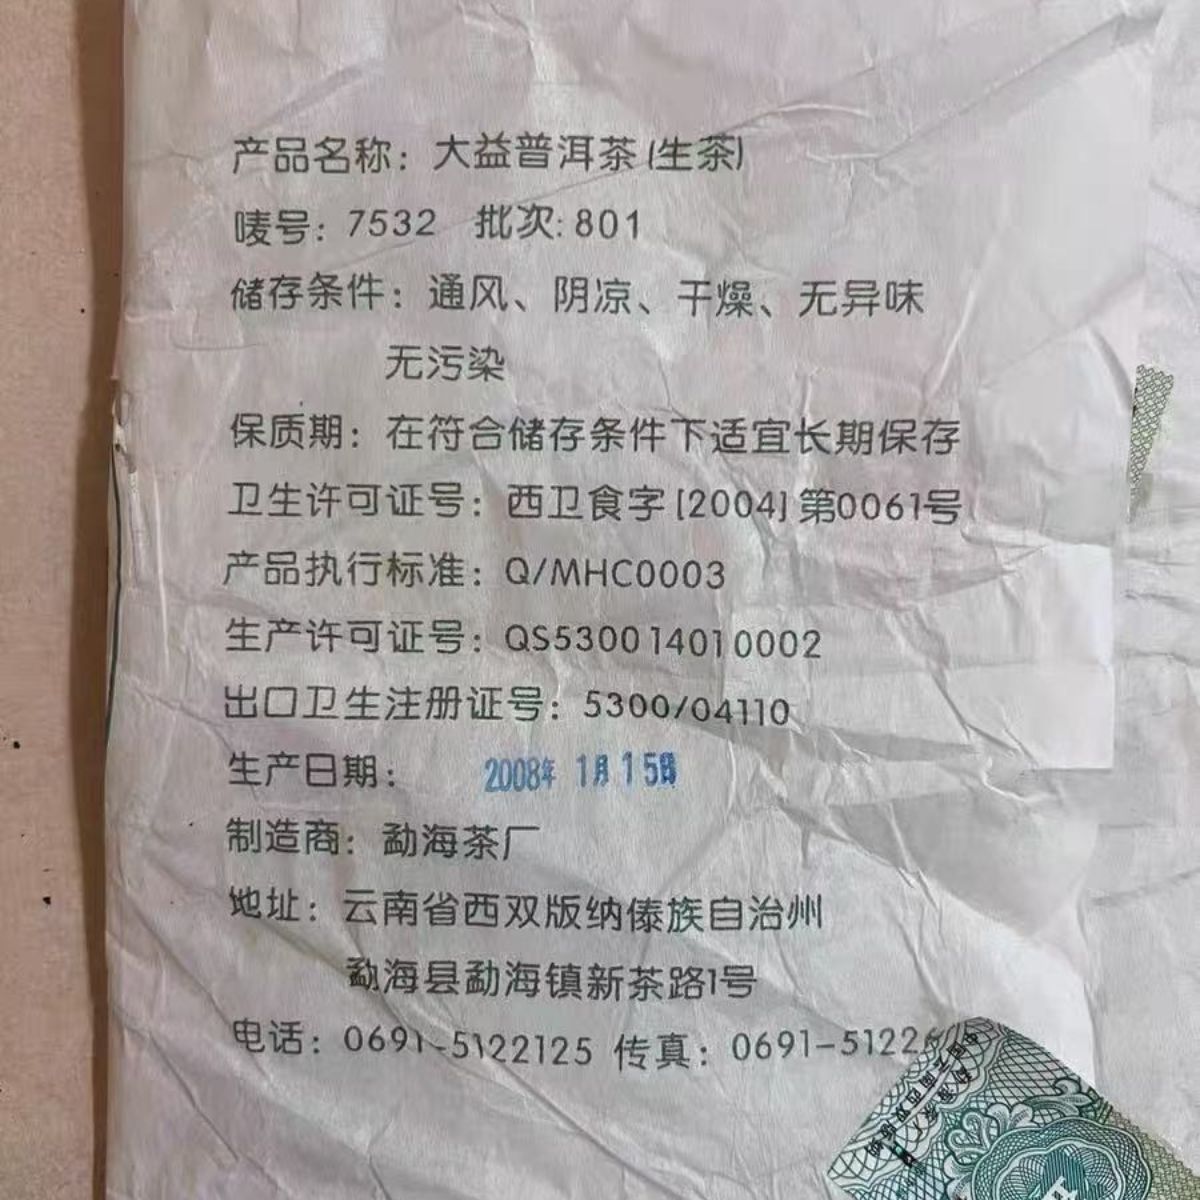 产品名称：大益普洱茶(生茶)
唛号：7532 批次:801
储存条件：通风、阴凉、干燥、无异味
无污染
保质期：在符合储存条件下适宜长期保存
卫生许可证号：西卫食字[2004]第0061号
产品执行标准：Q/MHC0003
生产许可证号：QS530014010002
出口卫生注册证号：5300/04110
生产日期：2008年 1月15日
制造商：勐海茶厂
地址：云南省西双版纳傣族自治州
勐海县勐海镇新茶路1号
电话：0691-5122125 传真：0691-51226